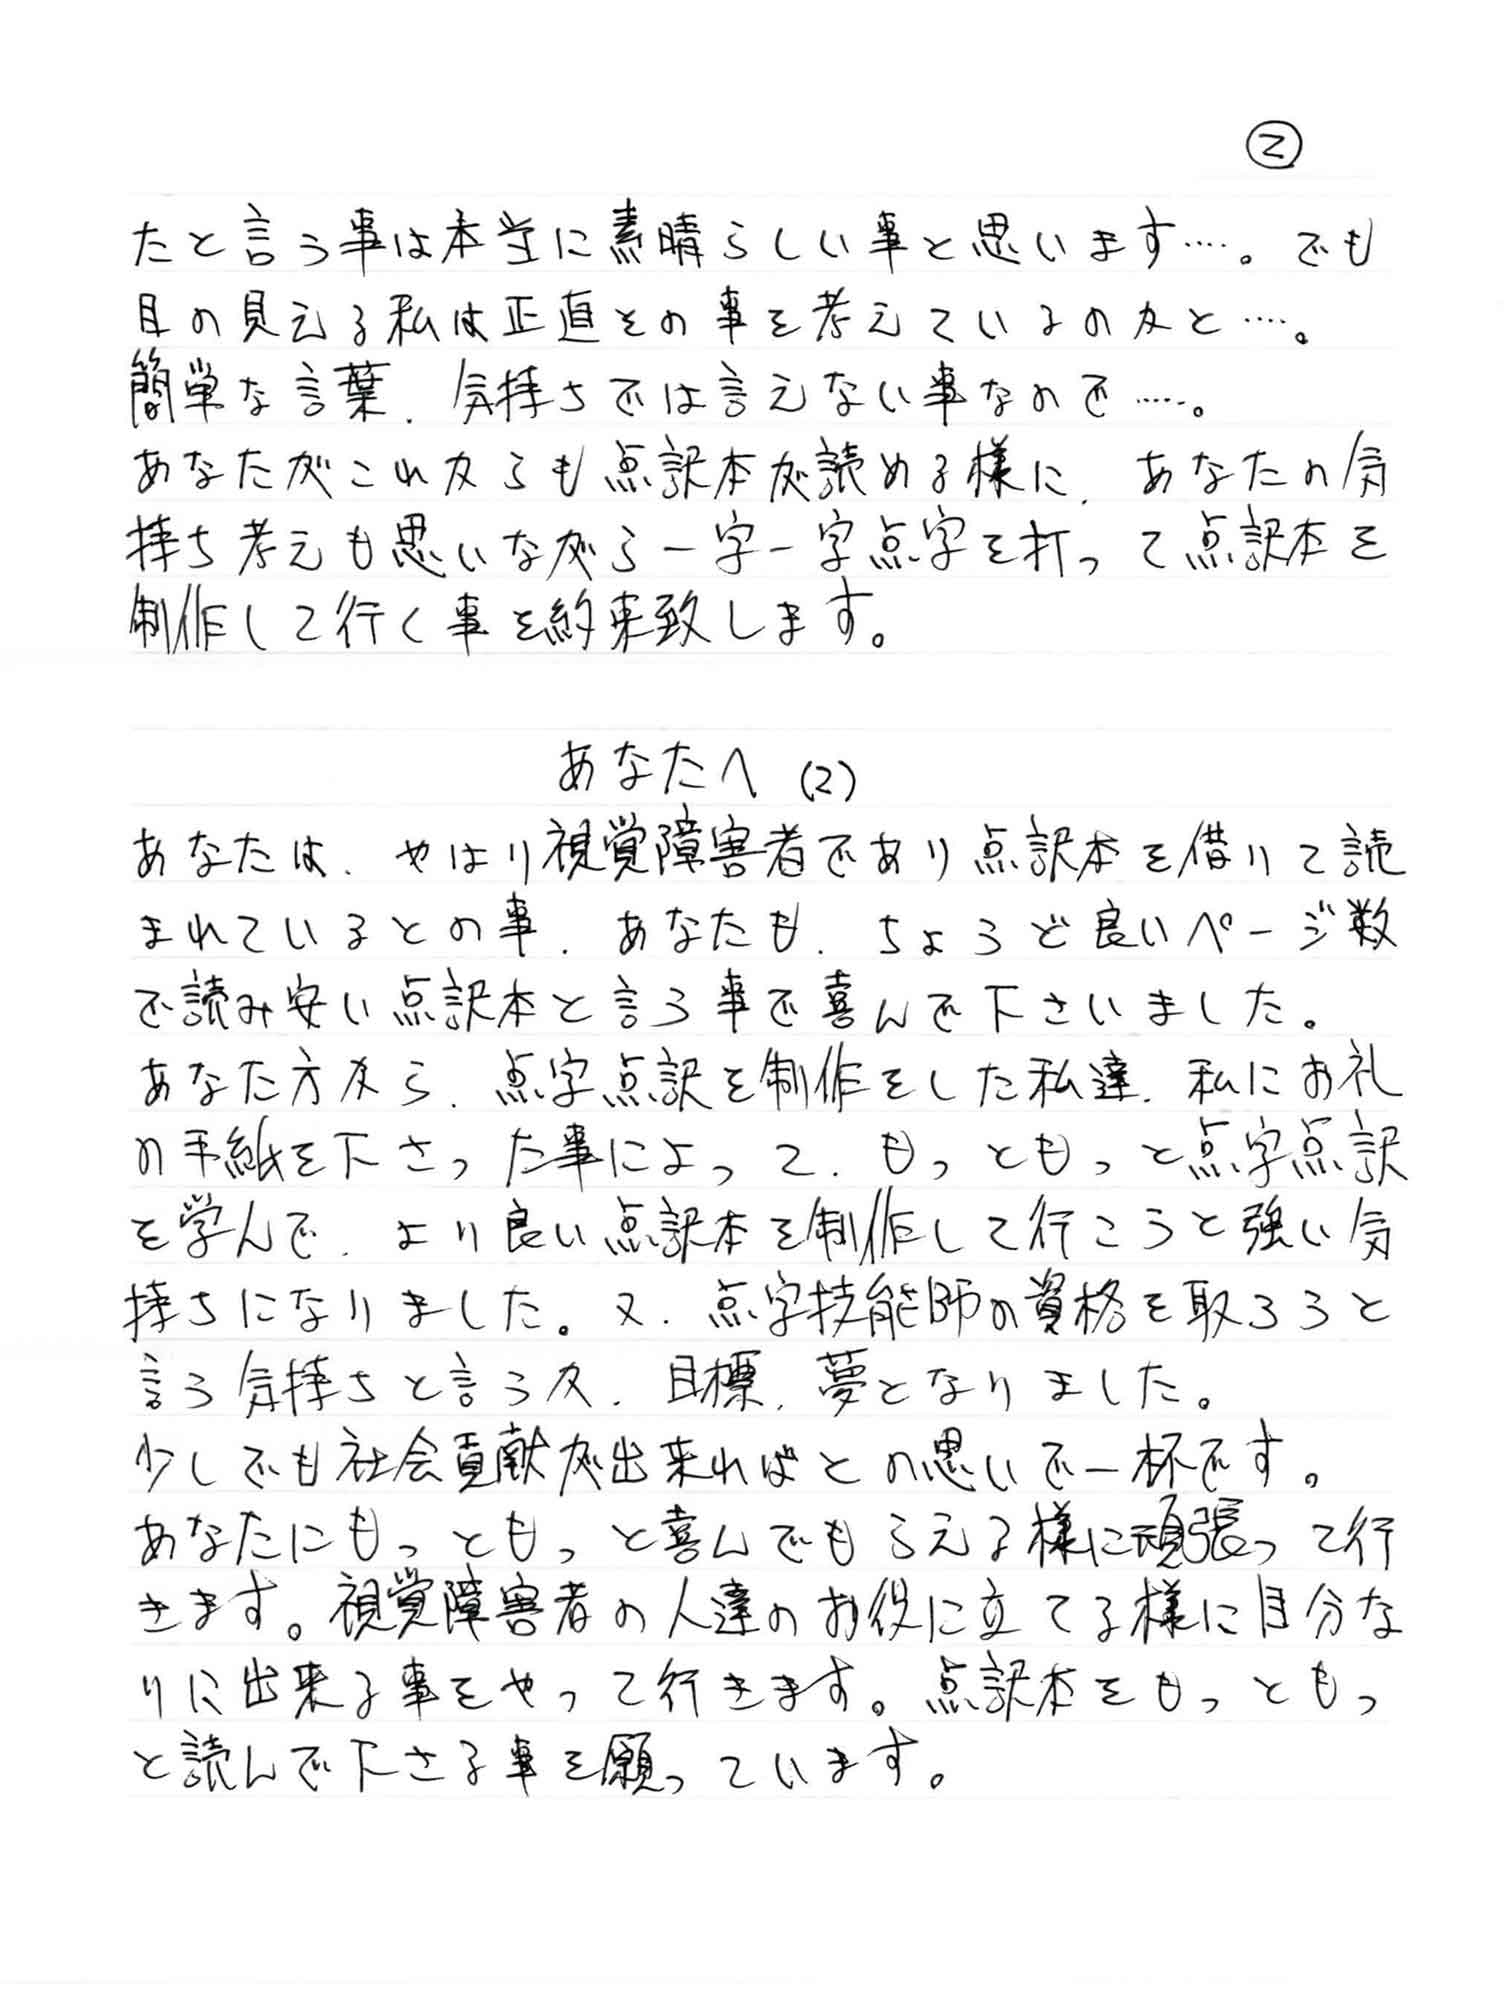 ②
たと言う事は本当に素晴らしい事と思います‥‥。でも
目の見える私は正直その事を考えているのかと‥‥。
簡単な言葉、気持ちでは言えない事なので‥‥。
あなたがこれからも点訳本が読める様に、あなたの気
持ち考えも思いながら一字一字点字を打って点訳本を
制作して行く事を約束致します。
あなたへ (2)
あなたは、やはり視覚障害者であり点訳本を借りて読
まれているとの事、あなたも、ちょうど良いページ数
で読み安い点訳本と言う事で喜んで下さいました。
あなた方から、点字点訳を制作をした私達、私にお礼
の手紙を下さった事によって、もっともっと点字点訳
を学んで、より良い点訳本を制作して行こうと強い気
持ちになりました。又、点字技能師の資格を取ろうと
言う気持ちと言うか、目標、夢となりました。
少しでも社会貢献が出来ればとの思いで一杯です。
あなたにもっともっと喜んでもらえる様に頑張って行
きます。視覚障害者の人達のお役に立てる様に自分な
りに出来る事をやって行きます。点訳本をもっともっ
と読んで下さる事を願っています。